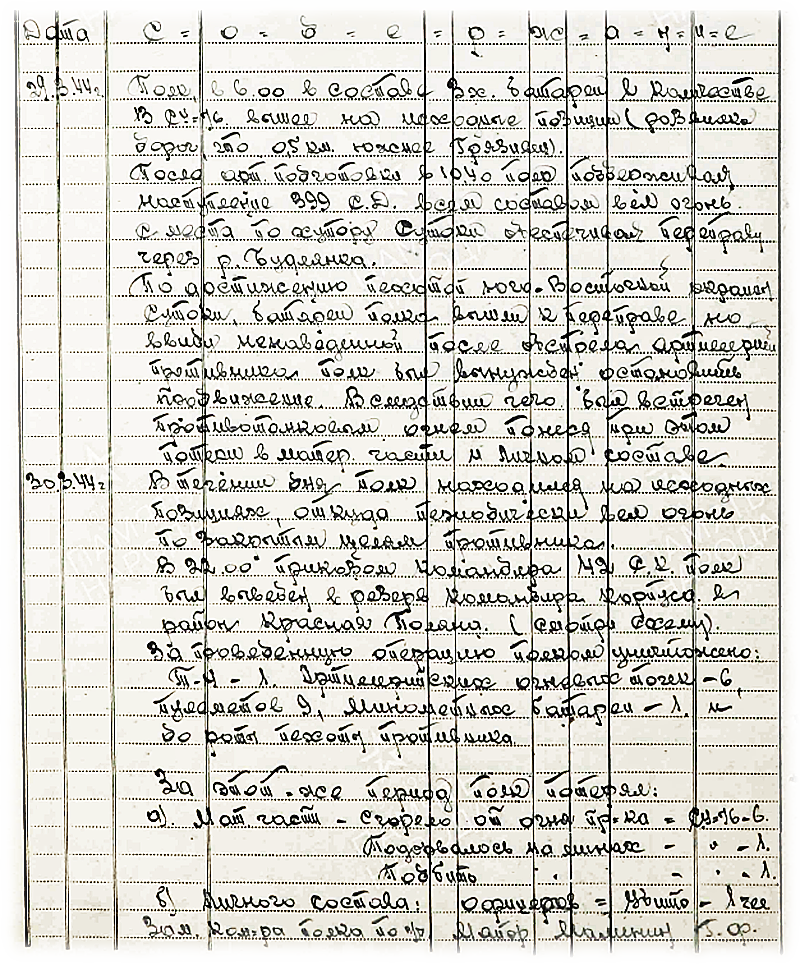 Дата С = о = д = е = р = ж = а = н = и = е
29.3.44г. Полк, в 6.00 в составе 3х. батарей в количестве
8 СУ-76. вышел на исходные позиции (развилка
дорог, что 0,5 км. южнее Грязивец).
После арт. подготовки в 10.40 полк поддерживая
наступление 399 С.Д. всем составом вёл огонь
с места по хутору Сутоки обеспечивая переправу
через р. Кудеянка.
По достижению пехотой юго-восточной окраины
Сутоки, батареи полка вышли к переправе, но
ввиду ненаведенной после обстрела артиллерией
противника полк был вынужден остановить
продвижение. В следствии чего был встречен
противотанковым огнем понеся при этом
потери в матер. части и личном составе.
30.3.44г В течении дня полк находился на исходных
позициях, откуда периодически вел огонь
по закрытым целям противника.
В 22.00 приказом командира 42 С.К. полк
был выведен в резерв командира корпуса в
район Красная Поляна. (смотри схему).
За проведенную операцию полком уничтожено:
Т-4 - 1. Артиллерийских огневых точек - 6,
пулеметов 9, минометных батарей - 1. и
до роты пехоты противника.
За этот-же период полк потерял:
а). Мат. части - сгорело от огня пр-ка = СУ-76-6.
Подорвалось на минах - " - 1.
Подбито " - " - 1.
б) Личного состава: офицеров = убито - 1 чел
Зам. ком-ра полка по Майор Г. Ф.